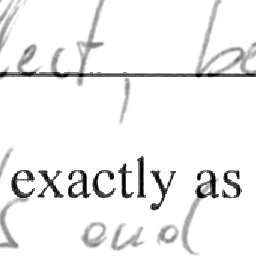 lect, be
exactly as
s and